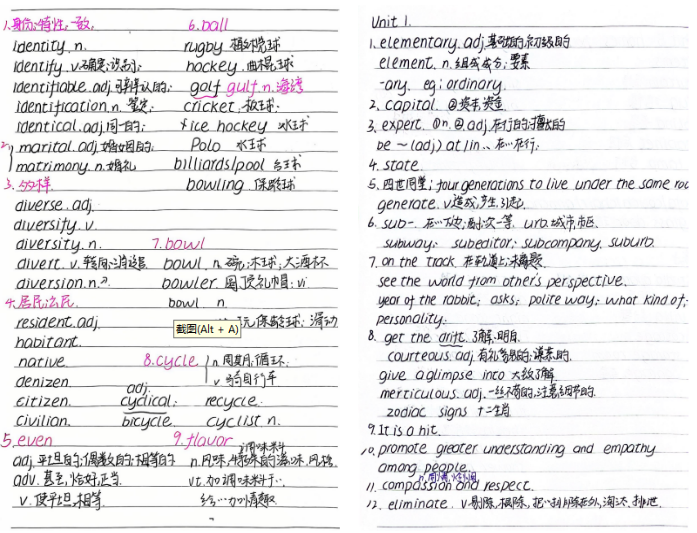 1.身份;特性,一致;
identity. n.
identify. v.确定;识别;
identifiable. adj.可辨认的;
identification. n. 鉴定;
identical. adj.同一的;
2. marital. adj.婚姻的;
matrimony. n.婚礼
3.多样
diverse. adj.
diversify. v.
diversity. n.
divert. v. 转向;消遣
diversion. n.
4.居民;公民
resident. adj.
habitant.
native.
denizen.
citizen.
civilian.
5.even
adj.平坦的;偶数的;相等的
adv. 甚至,恰好,正当
v. 使平坦,相等
6.ball
rugby 橄榄球
hockey. 曲棍球
golf gulf n.海湾
cricket. 板球
ice hockey 冰球
Polo 水球
billiards/pool 台球
bowling. 保龄球
7.bowl
bowl. n.碗;木球;大酒杯
bowler. 圆顶礼帽: vi
bowl. n
玩保龄球;滑动
截图(Alt + A)
8.cycle n.周期,循环.
v.骑自行车
adj.
cyclical. recycle.
bicycle. cyclist n.
9.flavor 调味料
n.风味,特殊的滋味,风格
vt.加调味料于..
给…加情趣
Unit 1.
1. elementary. adj.基础的,初级的
element. n.组成成分;要素
-ary. eg: ordinary.
2. capital. @资本.资金
3. expert. @n. @adj.在行的;擅长的
be ~ (adj) at/in.. 在…在行.
4. state.
5. 四世同堂; four generations to live under the same roo
generate. v.造成,产生,引起.
6. sub-. 在…下边;副;次一等. urb.城市,市区.
subway; subeditor; subcompany, suburb.
7. on the track 在轨道上;
see the world from other's perspective.
year of the rabbit; asks; polite way; what kind of;
personality;
8. get the drift. 了解.明白.
courteous. adj.有礼貌的;谦恭的.
give a glimpse into 大致了解
merticulous. adj.一丝不苟的,注意细节的.
zodiac signs 十二生肖
9. It is a hit.
10. promote greater understanding and empathy
among people.
n.同情,怜悯
11. compassion and respect.
12. eliminate. v.剔除,根除,把…排除在外,淘汰.排泄.